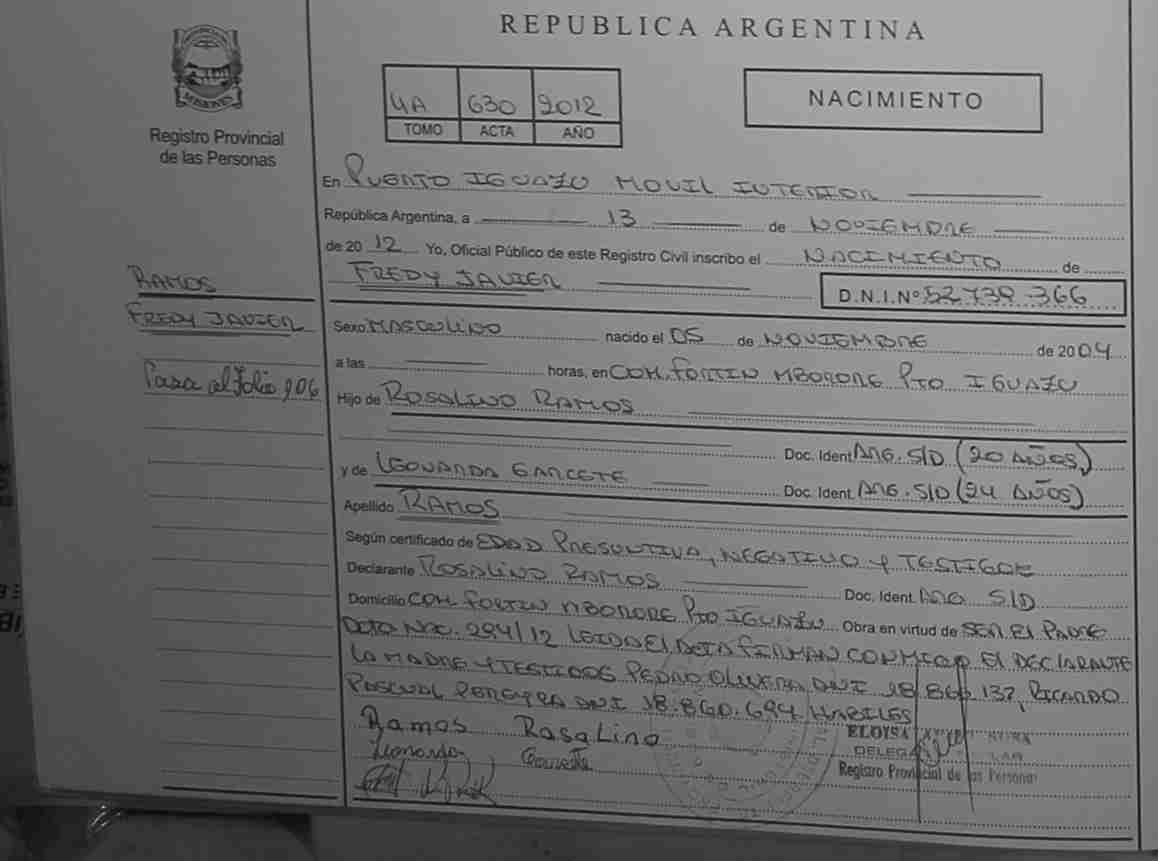 REPUBLICA ARGENTINA
MISIONES
Registro Provincial
de las Personas
4A 630 2012
TOMO ACTA AÑO
NACIMIENTO
En PUERTO IGUAZU MOVIL INTERIOR
República Argentina, a 13 de NOVIEMBRE
de 2012 Yo, Oficial Público de este Registro Civil inscribo el NACIMIENTO de
FREDY JAVIER
D.N.I.Nº 52.739.366
RAMOS
FREDY JAVIER
Pasa al folio 906
Sexo MASCULINO nacido el 05 de NOVIEMBRE de 2004
a las horas, en COM. FORTIN MBORORE PTO IGUAZU
Hijo de ROSALINO RAMOS
Doc. Ident. ARG. S/D (20 AÑOS)
y de LEONARDA GARCETE Doc. Ident. ARG. S/D (24 AÑOS)
Apellido RAMOS
Según certificado de EDAD PRESUNTIVA, NEGATIVO Y TESTIGOS
Declarante ROSALINO RAMOS Doc. Ident. ARG S/D
Domicilio COM. FORTIN MBORORE PTO IGUAZU Obra en virtud de SER EL PADRE
DCTO NAC. 294/12 LEIDA EL ACTA FIRMAN CONMIGO EL DECLARANTE
LA MADRE Y TESTIGOS PEDRO OLIVERA DNI 18.860.137, RICARDO
PASCUAL PEREYRA DNI 18.860.694 HABILES
Ramos Rosalino
Leonarda Garcete
ELOISA
Registro Provincial de las Personas